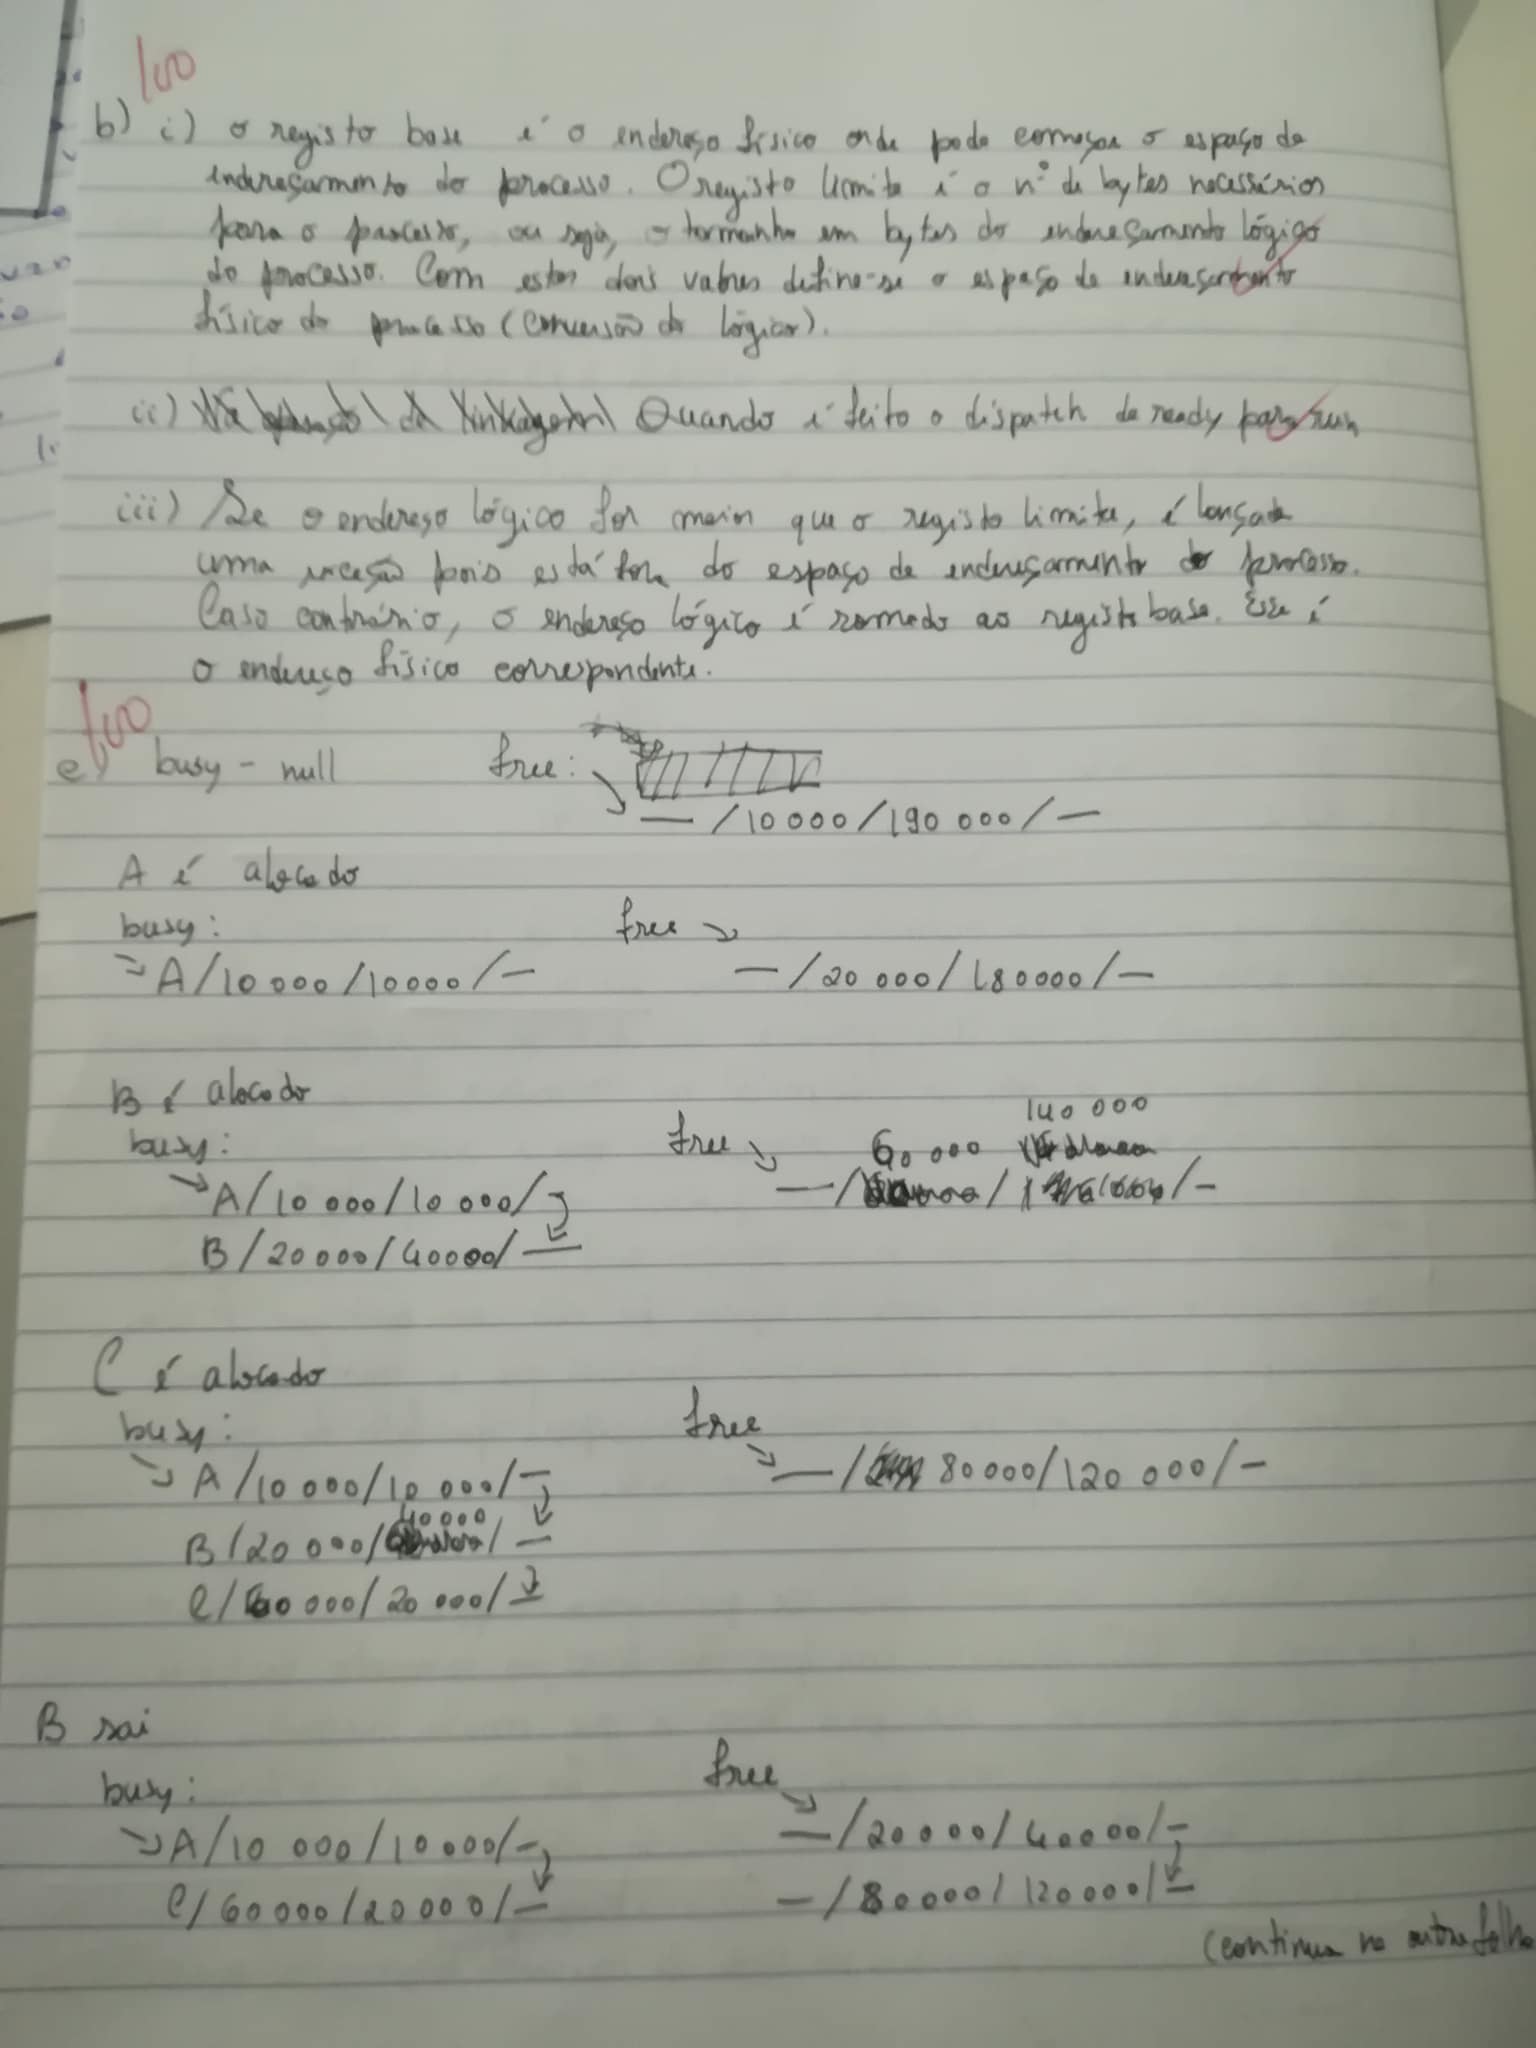 100
b) i) o registo base é o endereço físico onde pode começar o espaço de
endereçamento do processo. O registo limite é o nº de bytes necessários
para o processo, ou seja, o tamanho em bytes do endereçamento lógico
do processo. Com estes dois valores define-se o espaço de endereçamento
físico do processo (conversão do lógico).
ii) Quando é feito o dispatch de ready para run
iii) Se o endereço lógico for maior que o registo limite, é lançada
uma exceção pois está fora do espaço de endereçamento do processo.
Caso contrário, o endereço lógico é somado ao registo base. Esse é
o endereço físico correspondente.
100
c) busy - null free:
— /10 000/190 000/—
A é alocado
busy: free
A/10 000/10000/— —/20 000/180000/—
B é alocado
140 000
busy: free 60 000
A/10 000/10 000/ —/ / /—
B/20 000/40000/—
C é alocado
busy: free
A/10 000/10 000/— —/ 80000/120 000/—
40000
B/20 000/ /—
C/60 000/20 000/—
B sai
busy: free
A/10 000/10000/— —/20000/40000/—
C/60000/20000/— —/80000/120000/—
(continua na outra folha